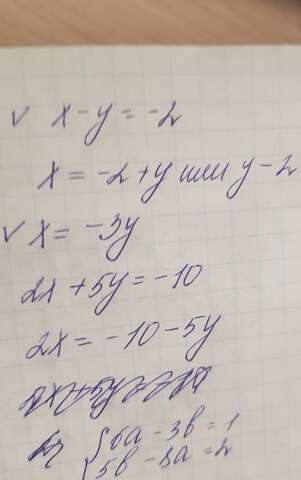 ✓ x - y = -2
x = -2 + y или y - 2
✓ x = -3y
2x + 5y = -10
2x = -10 - 5y
{6a - 3b = 1
5b - 3a = 2